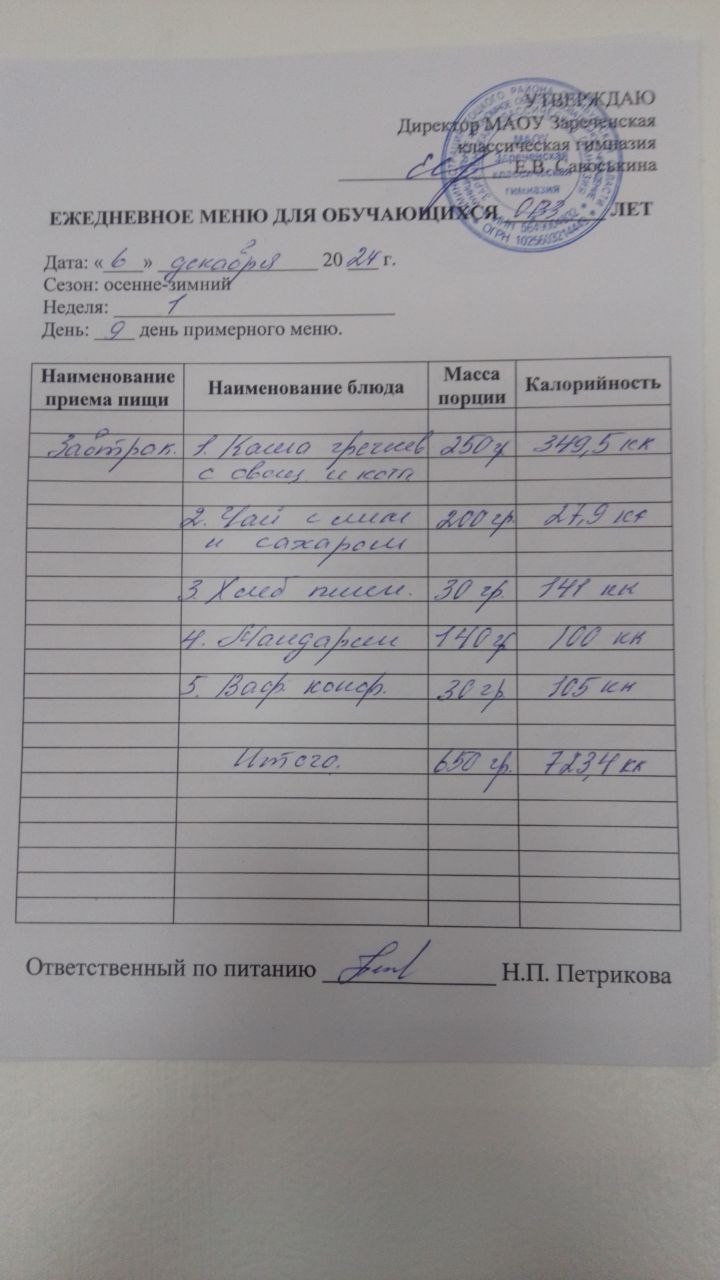 УТВЕРЖДАЮ
Директор МАОУ Зареченская
классическая гимназия
Е.В. Савоськина
МАОУ
Зареченская
классическая
гимназия
ОГРН 1025603214441
ЕЖЕДНЕВНОЕ МЕНЮ ДЛЯ ОБУЧАЮЩИХСЯ ОВЗ ЛЕТ
Дата: «6» декабря 2024 г.
Сезон: осенне-зимний
Неделя: 1
День: 9 день примерного меню.
Наименование приема пищи Наименование блюда Масса порции Калорийность
Завтрак. 1. Каша гречнев 250 гр 349,5 кк
с овощ и котл
2. Чай с лим 200 гр. 27,9 кк
и сахаром
3. Хлеб пшен. 30 гр. 141 кк
4. Мандарин 140 гр 100 кк
5. Ваф. конф. 30 гр 105 кк
Итого. 650 гр. 723,4 кк
Ответственный по питанию Н.П. Петрикова